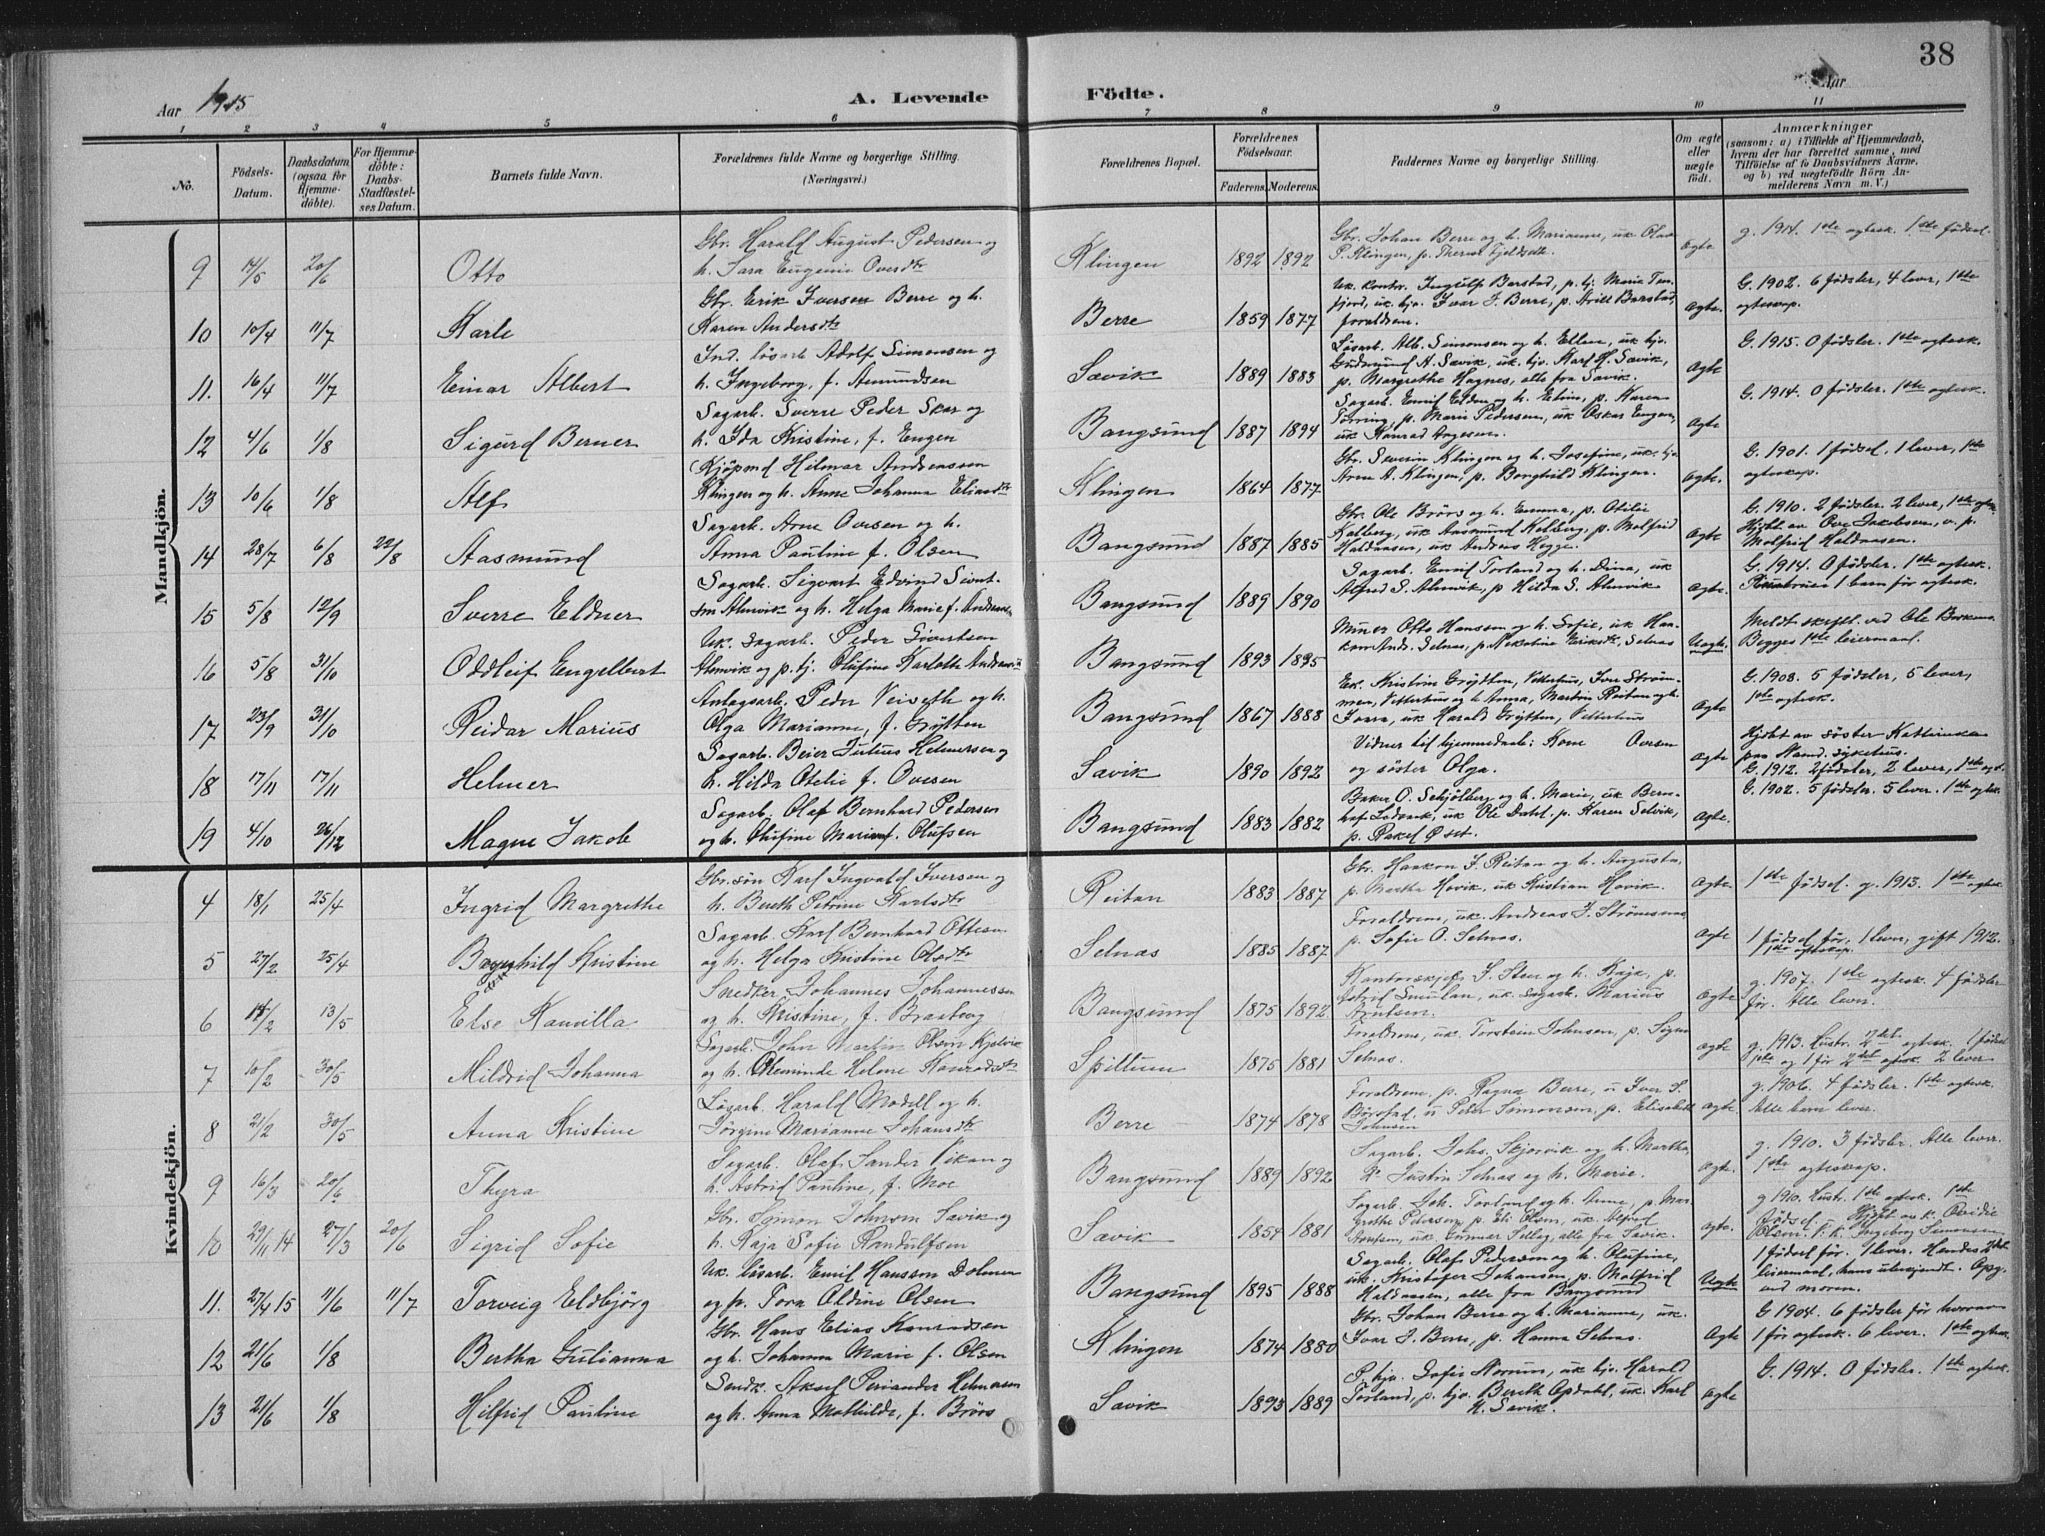 38
Aar 1915
A. Levende Födte.
Aar
1 2 3 4 5 6 7 8 9 10 11
No.
Födsels-Datum.
Daabsdatum (ogsaa for Hjemmedöbte).
For Hjemmedöbte: Daabs-Stadfæstelses Datum.
Barnets fulde Navn.
Forældrenes fulde Navne og borgerlige Stilling. (Næringsvei.)
Forældrenes Bopæl.
Forældrenes Födselsaar.
Faderens. Moderens.
Faddernes Navne og borgerlige Stilling.
Om ægte eller uægte födt.
Anmærkninger
(saasom: a) i Tilfælde af Hjemmedaab, hvem der har forrettet samme, med Tilföielse af to Daabsvidners Navne, og b) ved uægtefödte Börn Anmelderens Navn m. V.)
Mandkjön.
9 14/5 20/6 Otto
Gbr. Harald August Pedersen og
h. Sara Eugenie Oversdtr
Klingen 1892 1892
Gbr. Johan Berre og h. Marianne, uk. Olav
P. Klingen, p. Therese Fjeldseth.
Ægte
g. 1914. 1ste egtesk. 1ste fødsel.
10 10/4 11/7 Karle
Gbr. Erik Iversen Berre og h.
Karen Andersdtr
Berre 1859 1877
Uk. kontor. Ingulf Barstad, p. tj. Marie Ten-
fjord, uk. hjv. Ivar J. Berre, p. Arill Barstad,
foreldrene.
Ægte.
G. 1902. 6 fødsler, 4 lever, 1ste
egteskap.
11. 16/4 11/7 Einar Albert
Ind. løsarb. Adolf Simonsen og
h. Ingeborg, f. Amundsen
Savik 1889 1883
Løsarb. Alb. Simonsen og h. Ellen, uk hjv.
Gudmund A. Savik, uk. hjv. Karl H. Savik,
p. Margrethe Hagnes, alle fra Savik.
Ægte
G. 1915. 0 fødsler. 1ste egtesk.
12 4/6 1/8 Sigurd Berner
Sagarb. Sverre Peder Skar og
h. Ida Kristine, f. Engen
Bangsund 1887 1894
Sagarb. Emil Elden og h. Eline, p. Karen
Tørring, p. Marie Pedersen, uk Oskar Engen,
uk Konrad Aagesen.
Ægte
G. 1914. 0 fødsler. 1ste egtesk.
13 10/6 1/8 Alf
Kjøpmd Hilmar Andreassen
Klingen og h. Anne Johanna Eliasdtr
Klingen 1864 1877
Gbr. Severin Klingen og h. Josefine, uk. hjv
Arne A. Klingen, p. Borghild Klingen.
Ægte.
G. 1901. 1 fødsel. 1 lever, 1ste
egteskap.
14 28/7 6/8 22/8 Aasmund
Sagarb. Arne Ovesen og h.
Anna Pauline f. Olsen
Bangsund 1887 1885
Gbr. Ole Brörs og h. Emma, p. Otilie
Kalberg, uk. Aasmund Kalberg, p. Molfrid
Haldaasen, uk Andreas Hegge.
Ægte
G. 1910. 2 fødsler. 2 lever, 1ste egte
Hjdbt av Ove Jakobsen, v. p.
Molfrid Haldaasen.
15 5/8 12/9 Sverre Eldner
Sagarb. Sigvart Edvind Sivert-
sen Almvik og h. Helga Marie f. Andreasen
Bangsund 1889 1890
Sagarb. Emil Torland og h. Dina, uk
Alfred S. Almvik, p Hilda S. Almvik
Ægte.
G. 1914. 0 fødsler. 1ste egtesk.
1 barn før egtesk.
16 5/8 31/10 Oddleif Engelbert
Uk. Sagarb. Peder Sivertsen
Almvik og p. tj. Olufine Karlotte Andreasdtr
Bangsund 1893 1895
Minør Otto Hansen og h. Sofie, uk Haa-
kon And. Selnæs, p. Nekoline Eriksdtr, Selnæs
Uegte.
Meldt skriftl. ved Ole
Begges 1ste leiermaal.
17 23/9 31/10 Reidar Marius
Anlagsarb. Peder Veiseth og h.
Olga Marianne, f. Grytten
Bangsund 1867 1888
Uk. Kristian Grytten, Vetterhus, Iver Strøm-
men, Vetterhus og h Anna, Martin Reitan og h.
Ivara, uk. Harald Grytten, Vetterhus
Ægte
G. 1908. 5 fødsler, 5 lever,
1ste egtesk.
18 17/11 17/11 Helmer
Sagarb. Beier Julius Helmersen og
h. Hilda Otelie f. Ovesen
Savik 1890 1892
Vidner til hjemmedaab: Kone Ovesen
og søster Olga.
Ægte
Hjdbt av søster Kathinka
paa Namd. sykehus.
G. 1912. 2 fødsler, 2 lever, 1ste egt.
19 4/10 26/12 Magne Jakob
Sagarb. Olaf Bernhard Pedersen
og h. Olufine Marie f. Olufsen
Bangsund 1883 1882
Baker O. Schjølberg og h. Marie, uk Bern-
hof Lødvik, uk Ole Dahl, p. Karen Selvik,
p. Rakel Øset.
Ægte.
G. 1902. 5 fødsler. 5 lever. 1ste egtesk.
Kvindekjön.
4 18/1 25/4 Ingrid Margrethe
Gbr. søn Karl Ingvald Iversen og
h. Bereth Petrine Karlsdtr
Reitan 1883 1887
Gbr. Haakon J. Reitan og h. Augusta,
p. Martha Hovik, uk Kristian Hovik.
Ægte
1ste fødsel. g. 1913. 1ste egtesk.
5 27/2 25/4 Bergchild Kristine
Sagarb. Karl Bernhard Ottesen
og h. Helga Kristine Olsdtr
Selnæs 1885 1887
Foreldrene, uk. Andreas J. Strømsnes
p. Sofie O. Selnæs.
Ægte
1 fødsel før, 1 lever, gift 1912.
1ste egteskap
6 14/2 13/5 Else Kamilla
Snedker Johannes Johannessen
og h. Kristine, f. Braaberg
Bangsund 1875 1892
Kontorskjef S. Steen og h. Kaja, p.
Astrid Smulan, uk. Sagarb. Marius
Arntsen.
Ægte
g. 1907. 1ste egtesk. 4 fødsler
før. Alle lever.
7 10/2 30/5 Mildrid Johanna
Sagarb. John Martin Olsen Kjelvik
og h. Oleminde Helene Konradsdtr
Spillum 1875 1881
Foreldrene, uk. Torstein Johnsen, p. Signe
Selnæs.
Ægte
g. 1913. Hustr. 2det egtesk. 1 fødsel
1ste og 1 før 2det egtesk. 2 lever
8 21/2 30/5 Anna Kristine
Løsarb. Harald Modell og h.
Jørgine Marianne Johansdtr
Berre 1874 1878
Foreldrene, p. Ragna Berre, u Iver S.
Børstad, u Peter Simonsen, p. Elisabeth
Johnsen
Ægte
g. 1906. 4 fødsler. 1ste egtesk.
Alle barn lever.
9 16/3 20/6 Thyra
Sagarb. Olaf Sander Vikan og
h. Astrid Pauline, f. Moe
Bangsund 1889 1892
Sagarb. Johs. Skjervik og h. Martha,
Justin Selnæs og h. Marie.
Ægte.
g. 1910. 3 fødsler. Alle lever.
1ste egteskap.
10 29/11 14 27/3 20/6 Sigrid Sofie
Gbr. Simon Johnsen Savik og
h. Kaja Sofie Randulfsen
Savik 1854 1881
Sagarb. Joh. Torland og h. Anne, p. Mar-
grethe Petersen, p. Eli Olsen, uk. Alfred
Arntsen, uk. Gunnar Sellæg, alle fra Savik.
Ægte.
g 1910. Hustr. 1ste egtesk. 1ste
fødsel. Hjdbt av k. Ovidie
Olsen. Ingeborg Simonsen
11. 27/4 15 11/6 11/7 Torveig Eldbjörg
Uk. løsarb. Emil Hansson Dolmen
og p. Tora Aldine Olsen
Bangsund 1895 1888
Sagarb. Olaf Pedersen og h. Olufine,
uk. Kristofer Johansen, p. Molfrid
Haldaasen, alle fra Bangsund
Uegte
1 fødsel før. 1 lever. Hendes 2det
leiermaal, hans ubekjendt. Opg.
ved moren.
12 21/6 1/8 Bertha Julianna
Gbr. Hans Elias Konradsen
og h. Johanna Marie f. Olsen
Klingen 1874 1880
Gbr. Johan Berre og h. Marianne, uk.
Ivar J. Berre, p. Hanna Selnæs.
Ægte
G 1904. 6 fødsler før hvorav
1 før egtesk. 6 lever. 1ste egtesk.
13 21/6 1/8 Hilfrid Pauline
Snedk. Aksel Periander Helmersen
og h. Anna Mathilde, f. Brörs
Savik 1893 1889
P. hjv. Sofie Norum, uk hjv. Harald
Torland, p. hjv. Bereth Opdahl, uk. Karl
H. Savik.
Ægte
G. 1914. 0 fødsler. 1ste egtesk.